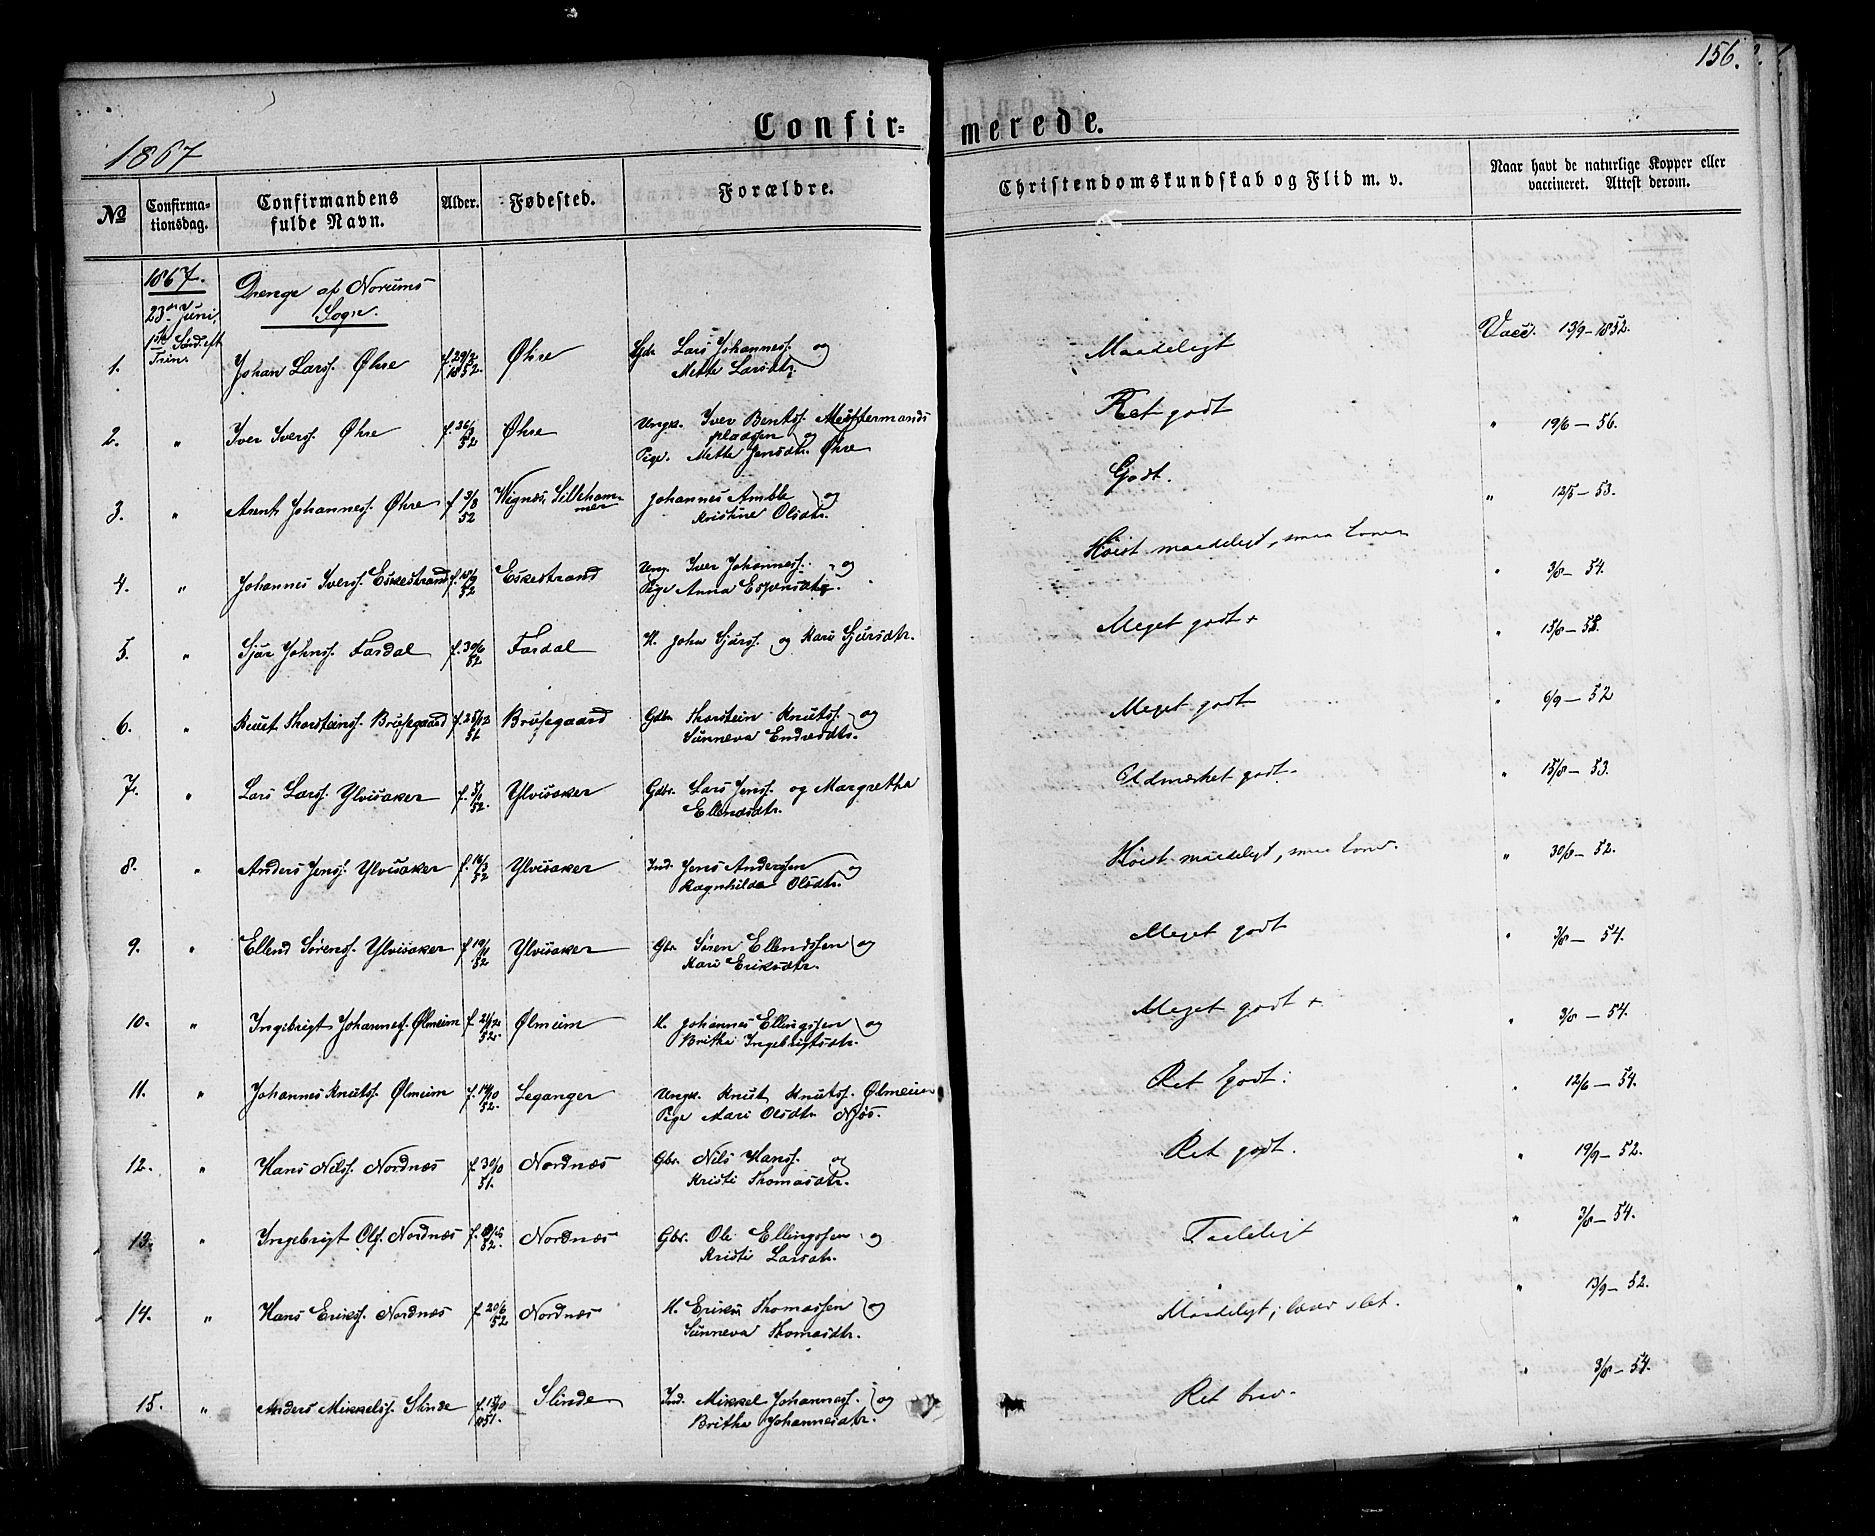 156.
Confir-
merede.
1867
No
Confirma-
tionsdag.
Confirmandens
fulde Navn.
Alder.
Fødested.
Forældre.
Christendomskundskab og Flid m. v.
Naar havt de naturlige Kopper eller
vaccineret. Attest derom.
1867.
23de Juni,
1ste Sønd. eft
Trin.
Drenge af Norums
Sogn.
1. Johan Larss. Øhre f. 29/2 1852. Øhre Gdr. Lars Johanness. og
Mette Larsdtr. Maadeligt Vacc. 13/9 - 1852.
2. " Iver Iverss. Øhre f. 26/3 52 Øhre Ungk. Iver Bentss. Mestermands
pladsen og
Pige. Mette Jensdtr. Øhre Ret godt " 19/6 - 56.
3. " Arent Johanness. Øhre f. 3/8 52 Wignæs, Lilleham-
mer Johannes Amble og
Kristine Olsdtr. Godt. " 12/5 - 53.
4. " Johannes Iverss. Eskestrand f. 52 Eskestrand Ung. Iver Johanness. og
Pige Anna Espensdtr. Høist maadeligt, smaa " 3/8 - 54.
5. " Sjur Johnss. Fardal f. 30/6 52 Fardal H. John Sjurss. og Kari Sjursdtr. Meget godt + " 15/8 - 53.
6. " Knut Thorsteinss. Brusegaard f. 25/12 51 Brusegaard Gdbr. Thorstein Knutss. og
Sunneva Endresdtr. Meget godt " 6/9 - 52
7. " Lars Larss. Ylvisaker f. 5/1 52. Ylvisaker Gdbr. Lars Jenss. og Margretha
Ellendsdtr. Udmærket godt. " 15/8 - 53.
8. " Anders Jenss. Ylvisaker f. 16/3 52 Ylvisaker Ind. Jens Anderssen og
Ragnhilda Olsdtr. Høist maadeligt, smaa " 30/8 - 52.
9. " Ellend Sørenss. Ylvisaker f. 19/1 52 Ylvisaker Gbr. Søren Ellendssen og
Kari Eriksdtr. Meget godt " 3/8 - 54.
10. " Ingebrigt Johanness. Ølmeim f. 21/12 52. Ølmeim H. Johannes Ellingssen og
Britha Ingebrigtsdtr. Meget godt + " 3/8 - 54.
11. " Johannes Knutss. Ølmeim f. 14/10 52. Leganger Ungk. Knut Knutss. Ølmeim
Pige Mari Olsdtr. Njøs. Ret godt. " 12/6 - 54.
12. " Hans Nilss. Nordnæs f. 30/10 51. Nordnæs Gbr. Nils Hanss. og
Kristi Thomasdtr. Ret godt. " 19/9 - 52.
13. " Ingebrigt Ols. Nordnæs f. 52. Nordnæs Gbr. Ole Ellingssen og
Kristi Larsdtr. Taaleligt " 3/8 - 54.
14. " Hans Erikss. Nordnæs f. 20/6 52 Nordnæs H. Erik Thomassen og
Sunneva Thomasdtr. Maadeligt; læser slet. " 13/9 - 52.
15. " Anders Mikkelss. Slinde f. 15/10 51. Slinde Ind. Mikkel Johanness. og
Britha Johannesdtr. Ret bra. " 3/8 - 54.